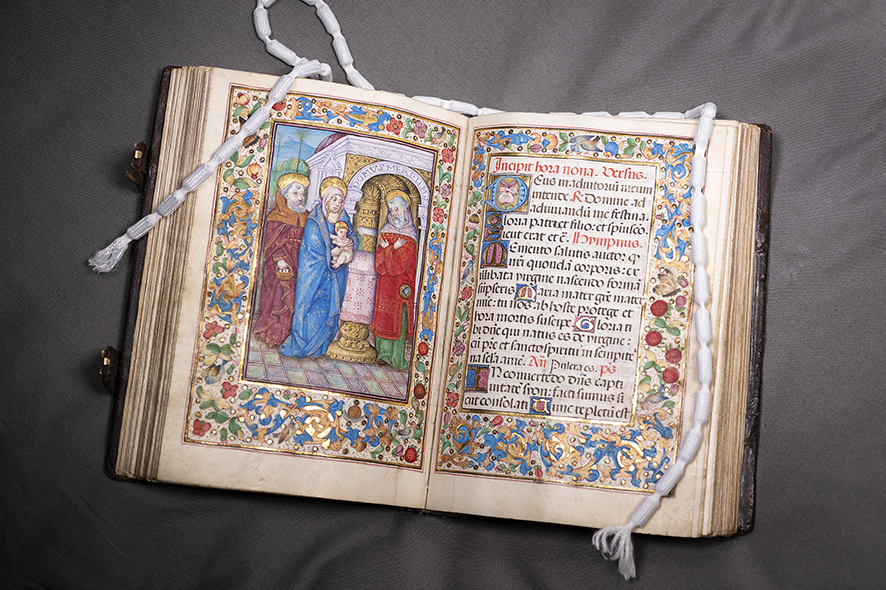 DOMUS MEA DO
Incipit hora nona. Versus.
Deus in adiutoriū meum
intende. ℟. Domine ad
adiuuandū me festina.
Gloria patri et filio: et spiu͛sco͛.
Sicut erat et c̄. Hympnus.
Memento salutis auctor q̄
nr̄i quondā corporis: ex
illibata virgine nascendo formā
sumpseris. Maria mater grē mater
mie: tu nos ab hoste protege et
hora mortis suscipe. Gloria ti
bi dn̄e qui natus es de virgine:
cū pr̄e et sancto spiritu in sempite
na sclā amē. Añ. Pulcra es. ps
IN conuertēdo dn̄s capti
uitatē syon: facti sumus si
cut consolati. Tunc repletū est